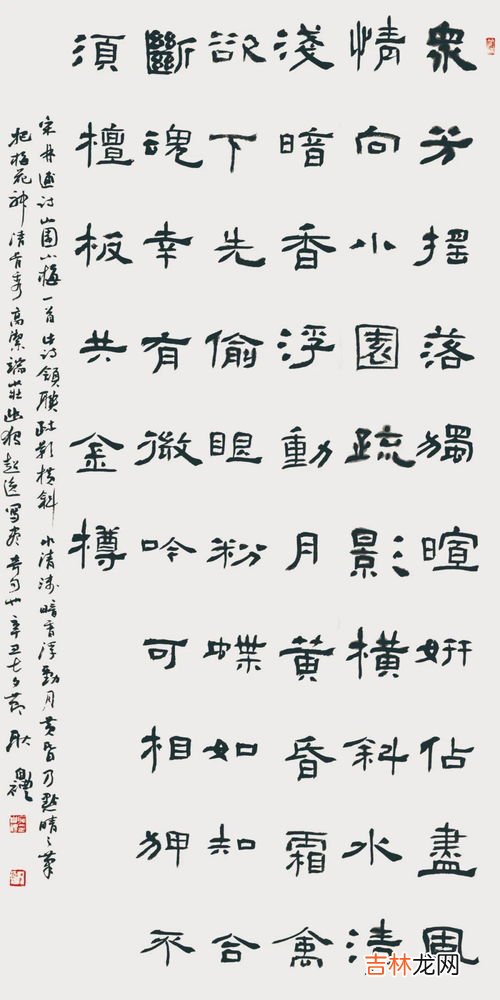 衆芳摇落獨暄妍佔盡風
情向小園疏影横斜水清
淺暗香浮動月黄昏霜禽
欲下先偷眼粉蝶如知合
斷魂幸有微吟可相狎不
須檀板共金樽
宋林逋诗山園小梅一首此诗頷聯疏影横斜水清淺暗香浮動月黄昏乃點睛之筆
把梅花神清骨秀高潔端莊幽獨超逸寫盡奇句也辛丑七夕節耿
吉林龙网